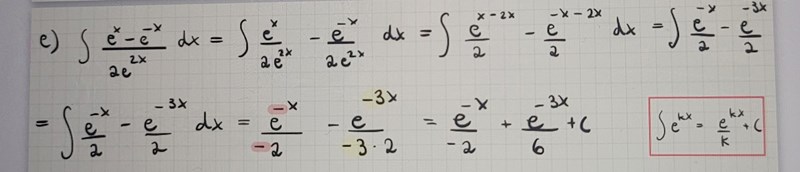 e) ∫ (e^x - e^-x)/(2e^2x) dx = ∫ e^x/(2e^2x) - e^-x/(2e^2x) dx = ∫ e^(x-2x)/2 - e^(-x-2x)/2 dx = ∫ e^-x/2 - e^-3x/2
= ∫ e^-x/2 - e^-3x/2 dx = e^-x/-2 - e^-3x/(-3·2) = e^-x/-2 + e^-3x/6 + C ∫e^kx = e^kx/k + C